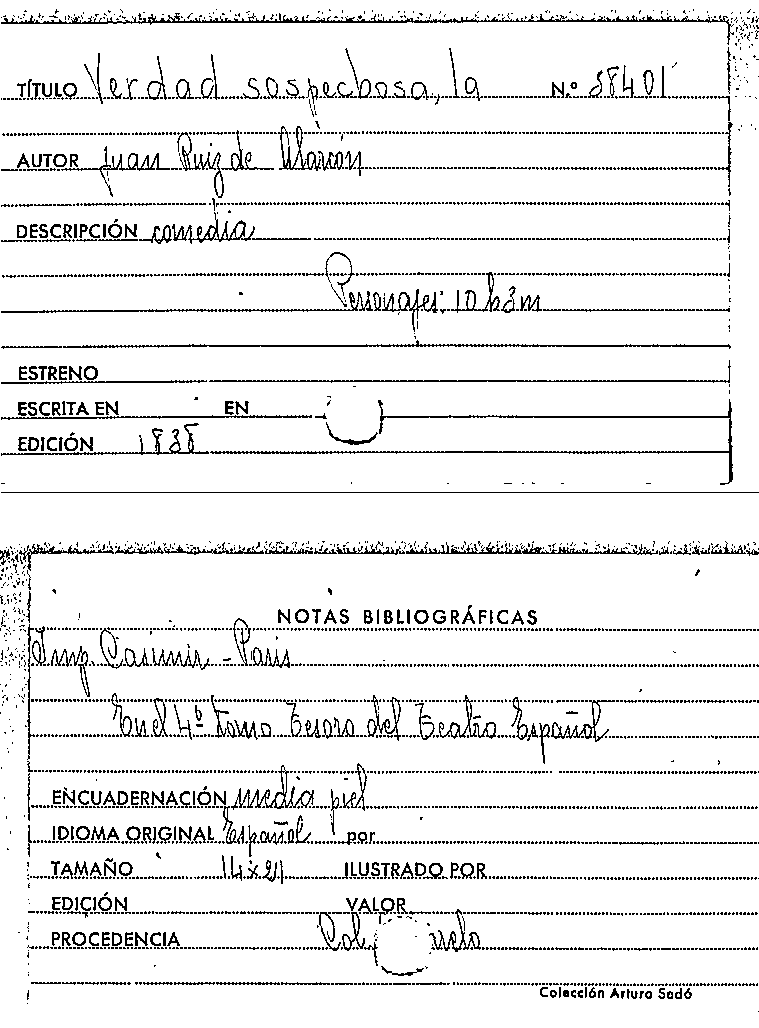 TÍTULO Verdad sospechosa, la N.º 38401
AUTOR Juan Ruiz de Alarcón
DESCRIPCIÓN comedia
Personajes: 10 h 3 m
ESTRENO
ESCRITA EN EN
EDICIÓN 1838
NOTAS BIBLIOGRÁFICAS
Imp. Casimir - Paris
En el 4º tomo Tesoro del Teatro Español
ENCUADERNACIÓN media piel
IDIOMA ORIGINAL Español por
TAMAÑO 14x21 ILUSTRADO POR
EDICIÓN VALOR
PROCEDENCIA Col.
Colección Arturo Sedó